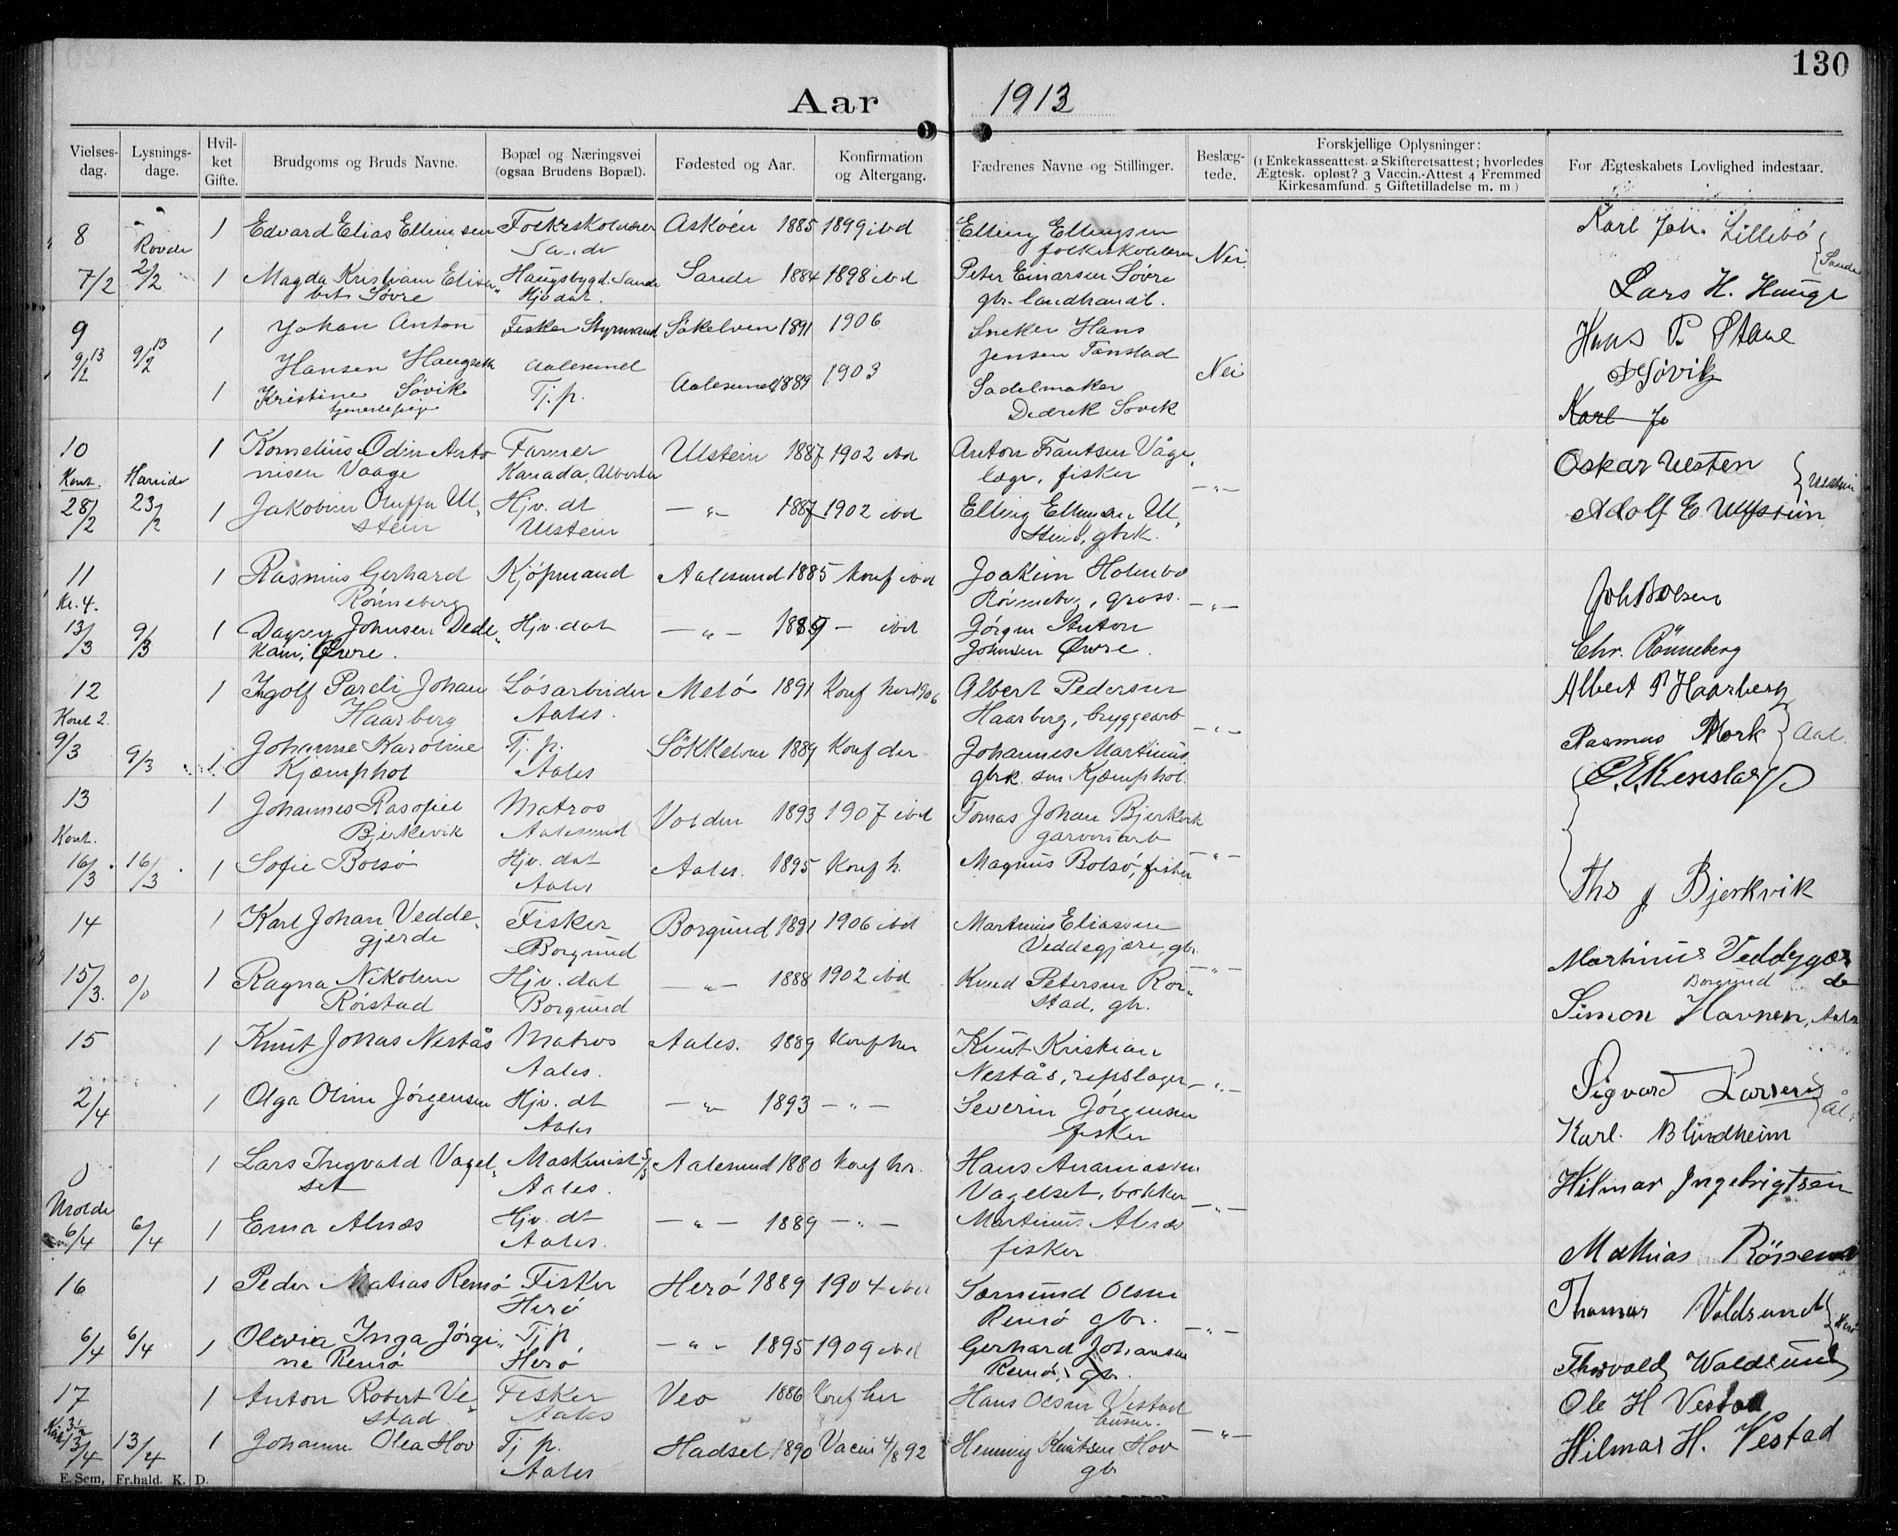 130
Aar 1913
Vielses-dag. Lysnings-dage. Hvil-ket Gifte. Brudgoms og Bruds Navne. Bopæl og Næringsvei (ogsaa Brudens Bopæl). Fødested og Aar. Konfirmation og Altergang. Fædrenes Navne og Stillinger. Beslæg-tede. Forskjellige Oplysninger: (1 Enkekasseattest. 2 Skifteretsattest; hvorledes Ægtesk. opløst? 3 Vaccin.-Attest 4 Fremmed Kirkesamfund. 5 Giftetilladelse m. m.) For Ægteskabets Lovlighed indestaar.
8 1 Edvard Elias Ellingsen Folkeskolelærer Askøen 1885 1899 ibd Elling Ellingsen Karl Joh. Lillebø
Rovde Sande folkeskolelærer Nei Sande
7/2 2/2 1 Magda Kristiane Elisa- Haugsbygd. Sande Sande 1884 1898 ibd Peter Einarsen Søvre Lars H. Hauge
bet Søvre Hjv. dat. gbr. landhandl.
9 1 Johan Anton Fisker Styrmand Søkelven 1891 1906 Sneker Hans Hans P. Stave
9/2 13 9/2 13 Hansen Haugseth Aalesund Jensen Tanstad Nei Søvik
1 Kristine Søvik Tj. p. Aalesund 1889 1903 Sadelmaker Karl Jo
tjenestepige Dedrik Søvik
10 1 Kornelius Odin Anto- Farmer Ulstein 1887 1902 ibd Anton Frantsen Våge- Oskar Ulsten
Kont. Hareide nisen Vaage Kanada, Alberta læge, fisker -"- Ulstein
28/2 23/2 1 Jakobine Oluffa Ul- Hjv. dt -"- 1887 1902 ibd Elling Ellingsen Ul- Adolf E Ulstein
stein Ulstein stein, gbrk.
11 1 Rasmus Gerhard Kjøpmand Aalesund 1885 Konf ibd Joakim Holmbo Joh Bolsen
Kr. 4. Rønneberg Rønneberg, gross. -"-
13/3 9/3 1 Dagny Johnsen Dede- Hjv. dat -"- 1889 - ibd Jørgen Anton Chr. Rönneberg
kam, Øwre. Johnsen Øwre.
12 1 Ingolf Pareli Johan Løsarbeider Melø 1891 Konf her 1906 Albert Pedersen Albert P Haarberg
Kont 2. Haarberg Aales. Haarberg, bryggearb -"-
9/3 9/3 1 Johanne Karoline Tj. p. Søkkelven 1889 Konf der Johannes Martinus Rasmus Mork Aal.
Kjæmphol Aales gbrk. sm Kjæmphol.
13 1 Johannes Rasopiel Matros Volden 1893 1907 ibd Tomas Johan Bjerkvik
Kont. Bjerkevik Aalesund garveriarb -"-
16/3 16/3 1 Sofie Bolsø Hjv. dat Aales. 1895 Konf h. Magnus Bolsø, fisker Ths J Bjerkvik
Aales
14 1 Karl Johan Vedde- Fisker Borgund 1891 1906 ibd Martinus Eliassen Martinus Veddegjær
gjerde Borgund Veddegjære, gbr. -"- Borgund de
15/3. 0/0 1 Ragna Nikoline Hjv. dat -"- 1888 1902 ibd Knud Petersen Röi- Simon Havnen, Aales
Röistad Borgund stad, gbr.
15 1 Knut Jonas Nestås Matros Aales. 1889 Konf her Knut Kristian
Aales. Nestås, repslager -"- Sigvard Larsen
2/4 1 Olga Oline Jørgensen Hjv. dt -"- 1893 -"- Severin Jørgensen Ål.
Aales fisker Karl. Blindheim
0 1 Lars Ingvald Vagel- Maskinist Aalesund 1880 Konf her. Hans Ananiassen Hilmar Ingebrigtsen
Molde set Aales. Vagelset, bøkker -"-
6/4 6/4 1 Erna Alnæs Hjv. dt -"- 1889 -"- Martinus Alnæs
Aales. fisker. Mathias Rönsen
16 1 Peder Matias Remö Fisker Herö 1889 1904 ibd Sæmund Olsen Thomas Voldsund
Herö Remö gbr. -"- Herö
6/4 6/4 1 Olevia Inga Jørgi- Tj p -"- 1895 1909 ibd Gerhard Johansen
ne Remö Herö Remö, gbr. Thorvald Woldsund
17 1 Anton Robert Ve- Fisker Veo 1886 Konf her Hans Olsen Vestad Ole H Vestad
stad Aales -"-
13/4 13/4 1 Johanne Olea Hov Tj p. Hadsel 1890 Vacin 4/8 92 Henning Knutsen Hov Hilmar H. Vestad
Aales gbr
E. Sem, Fr.hald. K. D.